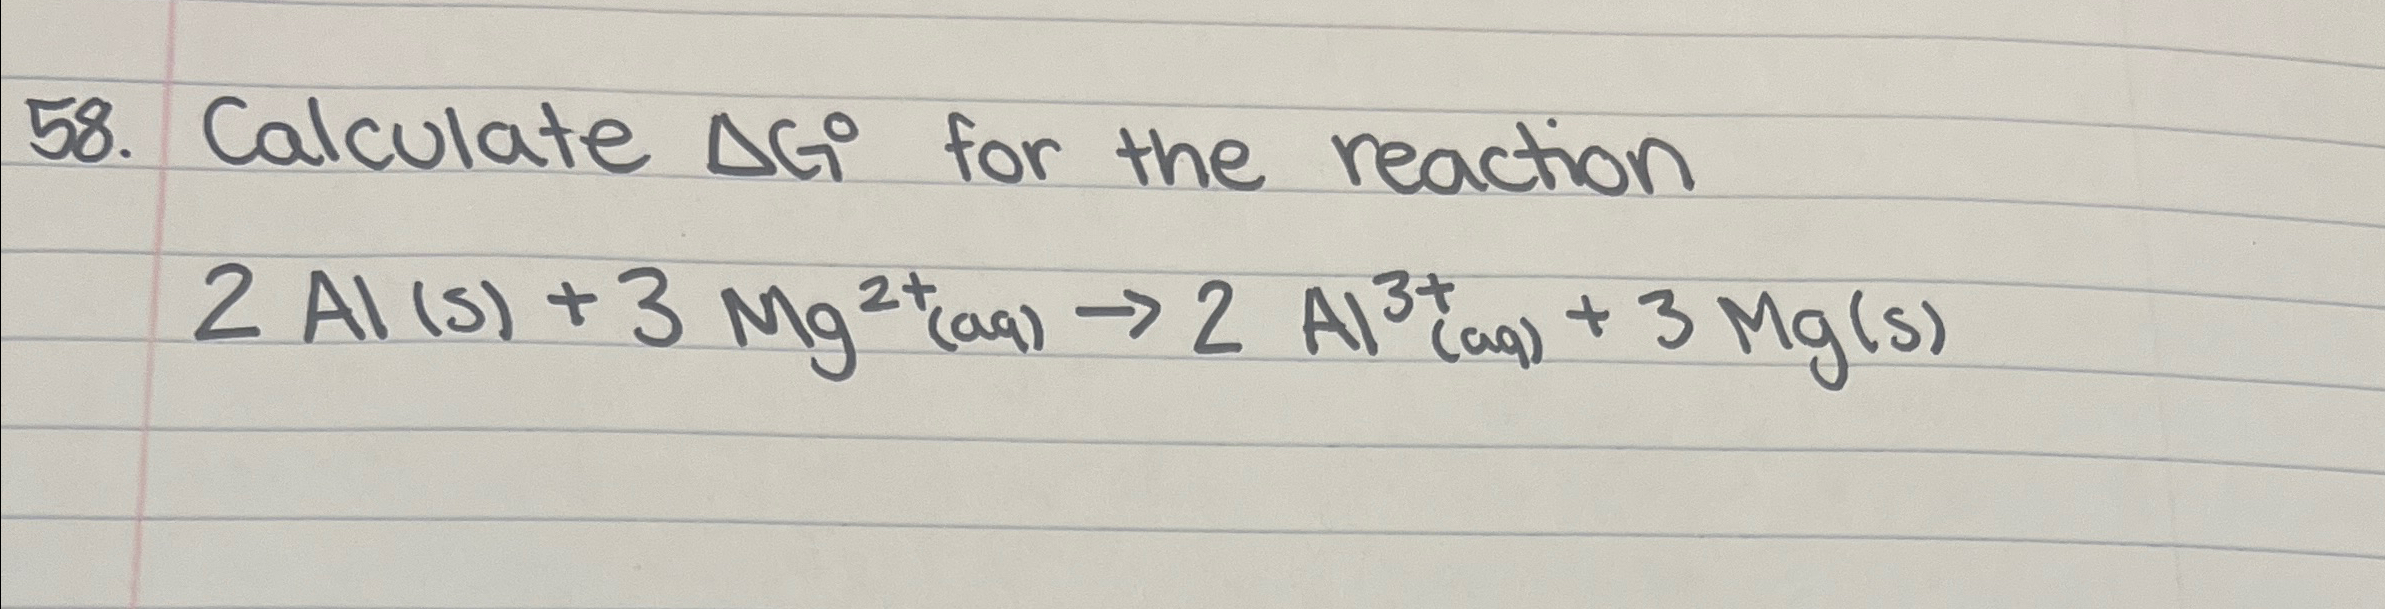 58. Calculate ΔG° for the reaction
2 Al(s) + 3 Mg²⁺(aq) → 2 Al³⁺(aq) + 3 Mg(s)